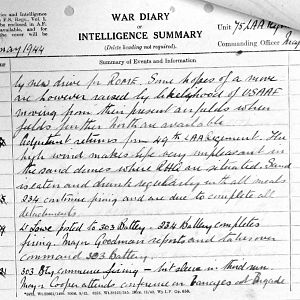 and Intelligence
F.S. Regs., Vol. I.
enclosed in A.F.
available, and
the cover will be
WAR DIARY
OF
INTELLIGENCE SUMMARY
(Delete heading not required).
Unit 75 LAA Regt
Commanding Officer Major
May 1944
Summary of Events and Information
by new drive for ROME. Some hopes of a move
are however raised by likelihood of USAAF
moving from their present airfields when
fields further north are available
Adjutant returns from 49th LAA Regiment. The
high wind makes life very unpleasant in
the sand dunes where RHQ are situated. Sand
is eaten and drunk regularly with all meals
234 continue firing and are due to complete all
detachments
Lowe posted to 303 Battery - 234 Battery completes
firing. Major Goodman reports and takes over
command 303 Battery.
303 Bty commence firing - hit sleeve in third run
Major Cooper attends conference on at Brigade